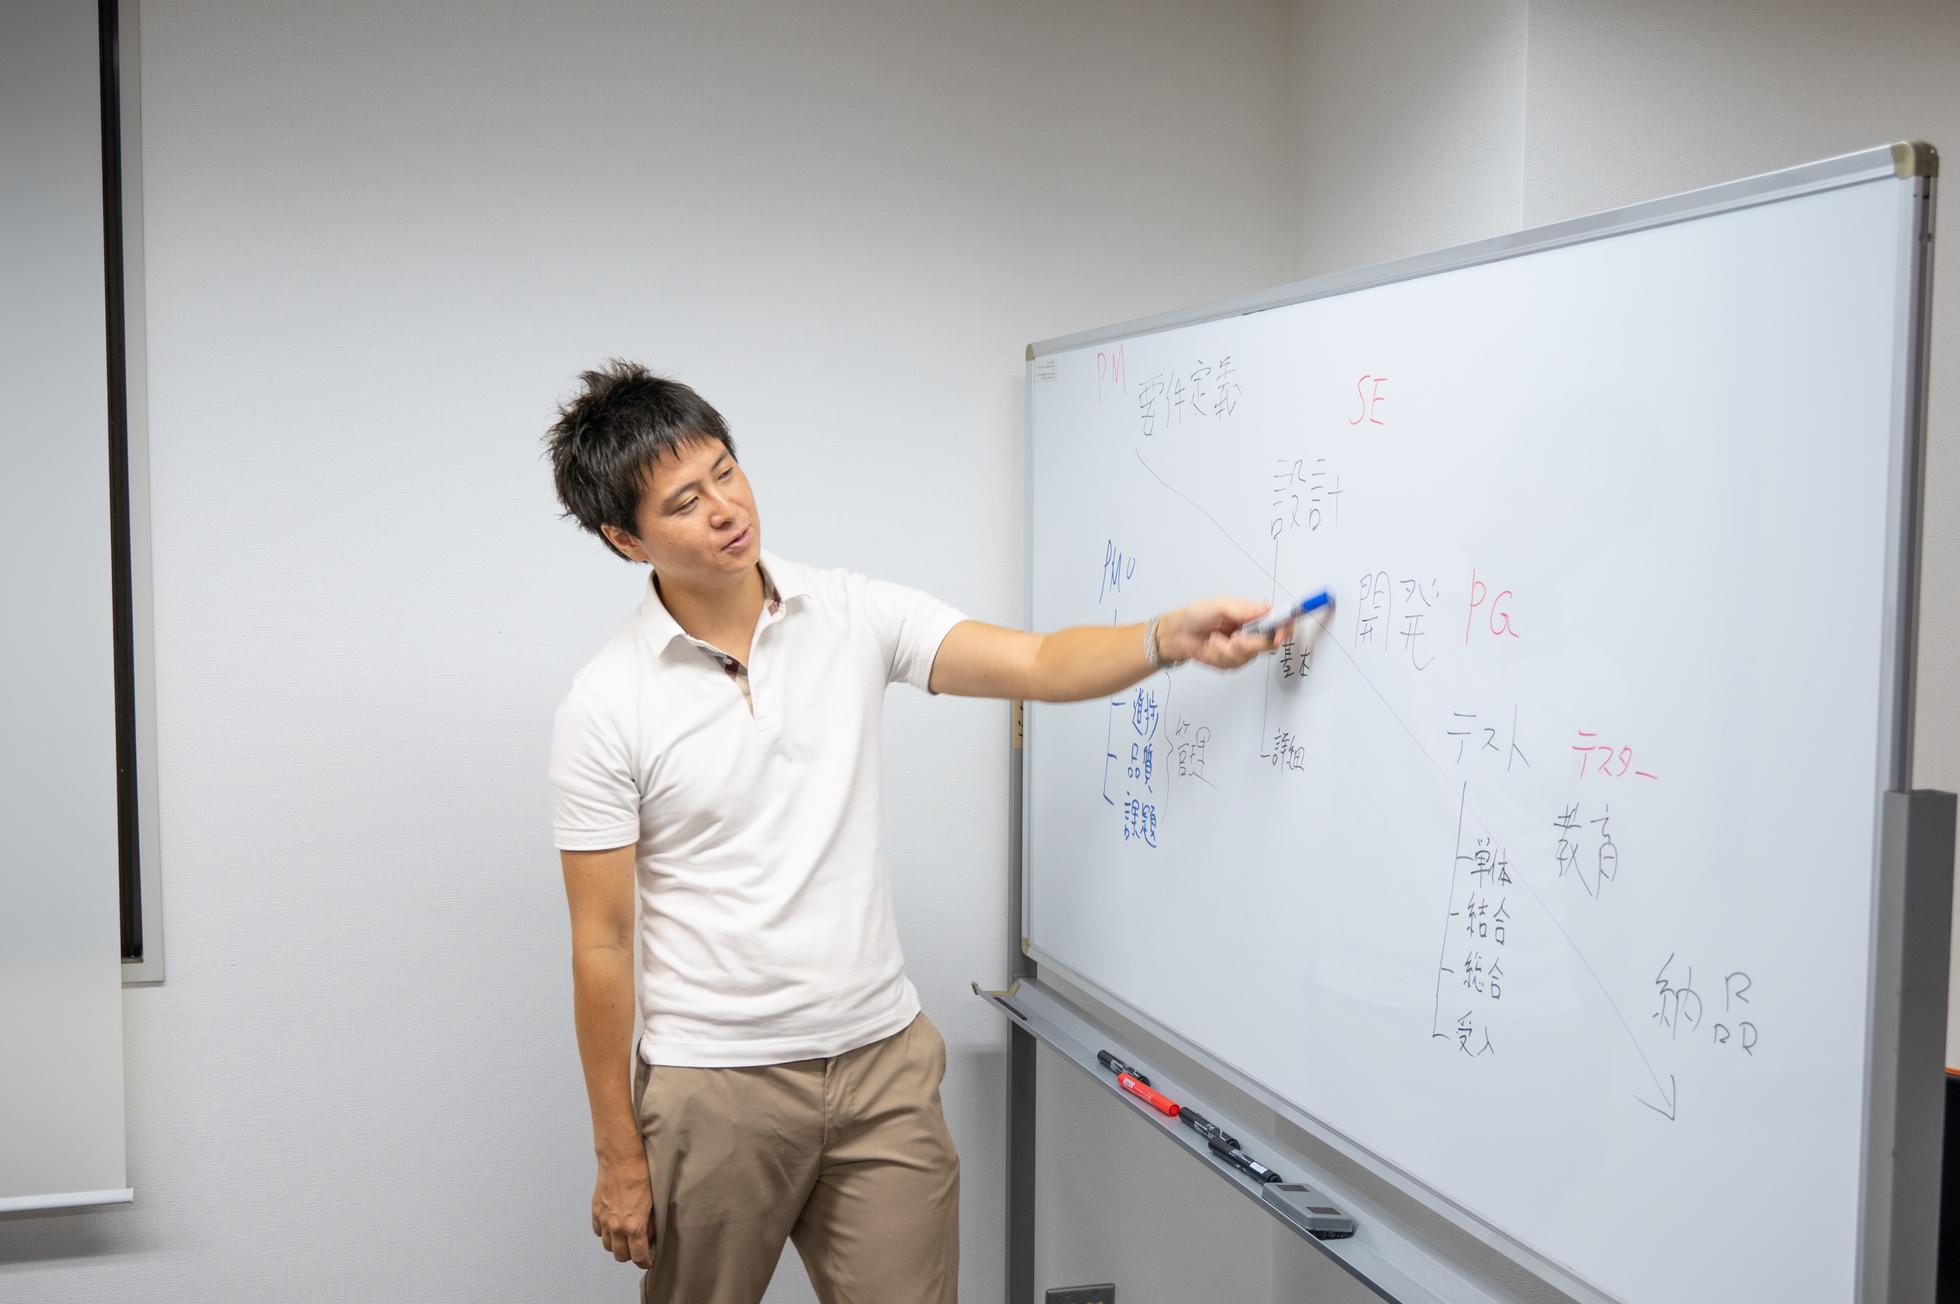 PM 要件定義
SE
設計
基本
詳細
PMO
進捗
品質
課題
管理
開発 PG
テスト テスター
教育
単体
結合
総合
受入
納品